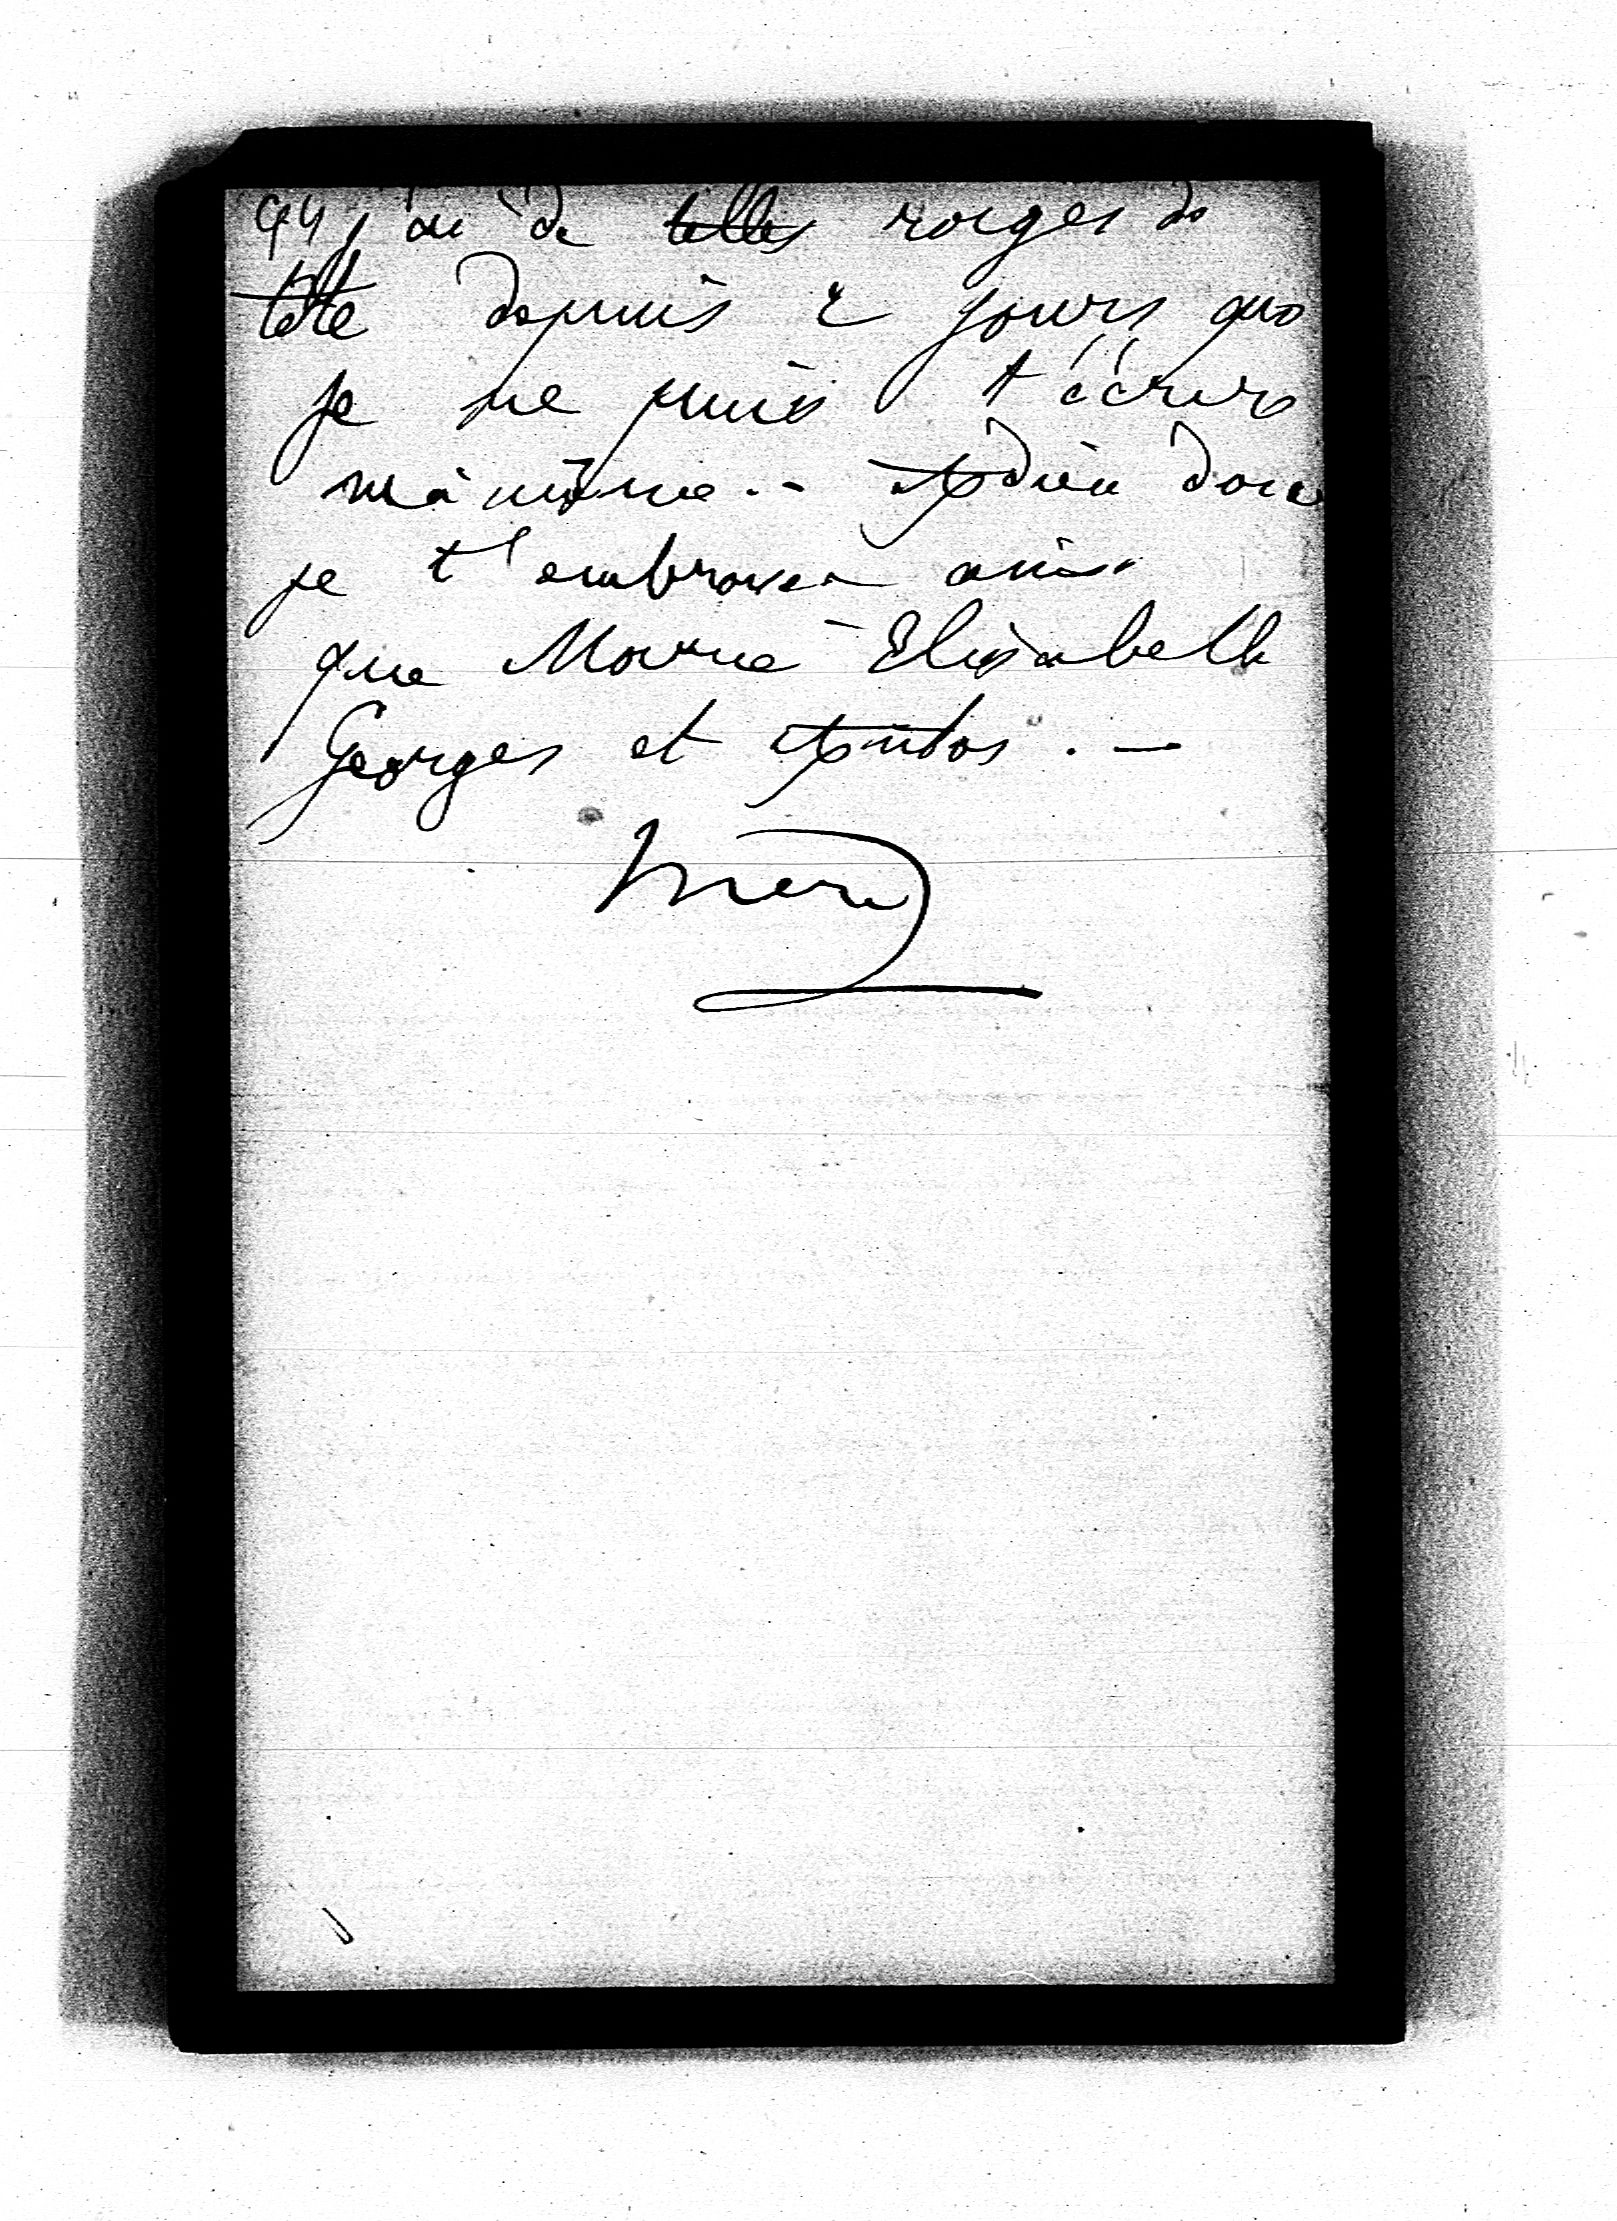 j'ai de telles rages de
tête depuis 2 jours que
je ne puis t'écrire
mà même. - Adieu donc
je t'embrasse ainsi
que Marie Elisabeth
Georges et Autos. —
Mère